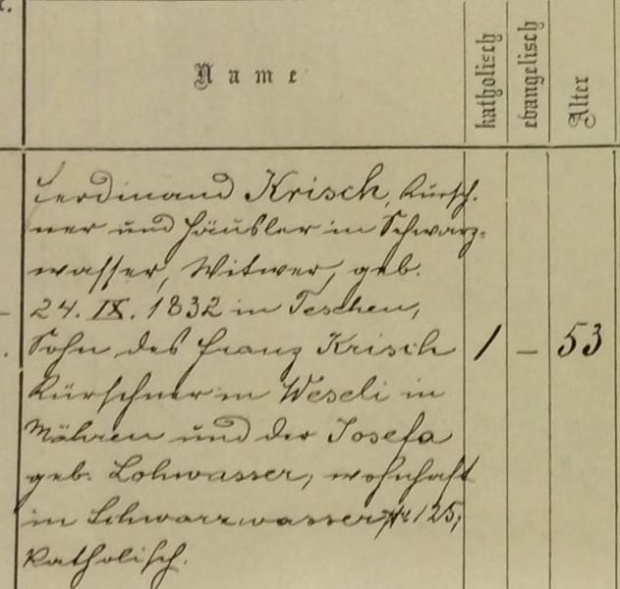 Name
katholisch
evangelisch
Alter
Ferdinand Krisch, Kürsch-
ner und Häusler in Schwarz-
wasser, Witwer, geb.
24. IX. 1832 in Teschen,
Sohn des Franz Krisch
Kürschner in Weseli in
Mähren und der Josefa
geb. Lohwasser, wohnhaft
in Schwarzwasser Nr 125,
katholisch.
1 – 53